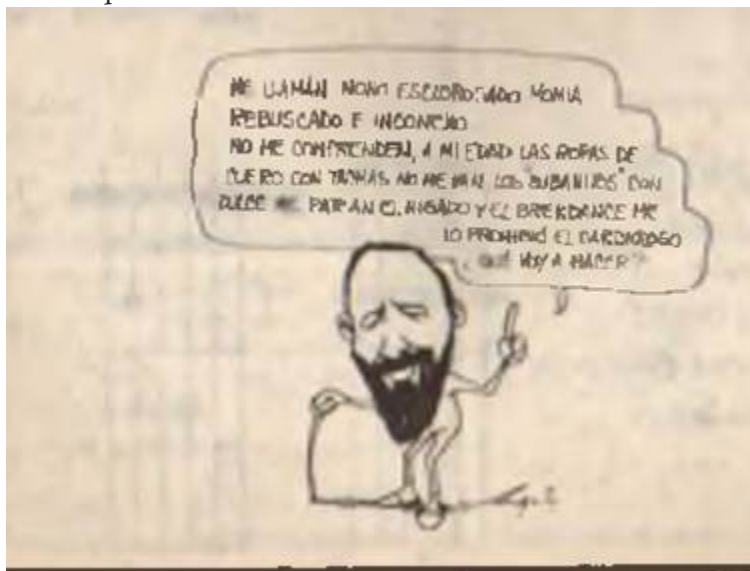 ME LLAMAN MONO ESCLOROSADO MOMIA
REBUSCADO E
NO ME COMPRENDEN, A MI EDAD LAS ROPAS DE
CUERO CON TACHAS NO ME VAN LOS "CUBANITOS" CON
DULCE ME PATEAN EL HIGADO Y EL BREKDANCE ME
LO PROHIBIÓ EL CARDIOLOGO
QUÉ VOY A HACER?